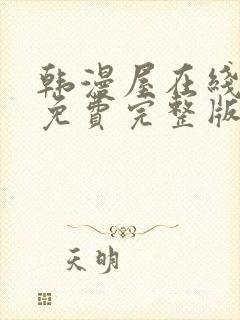 韩漫屋在线
免費完整版
天明